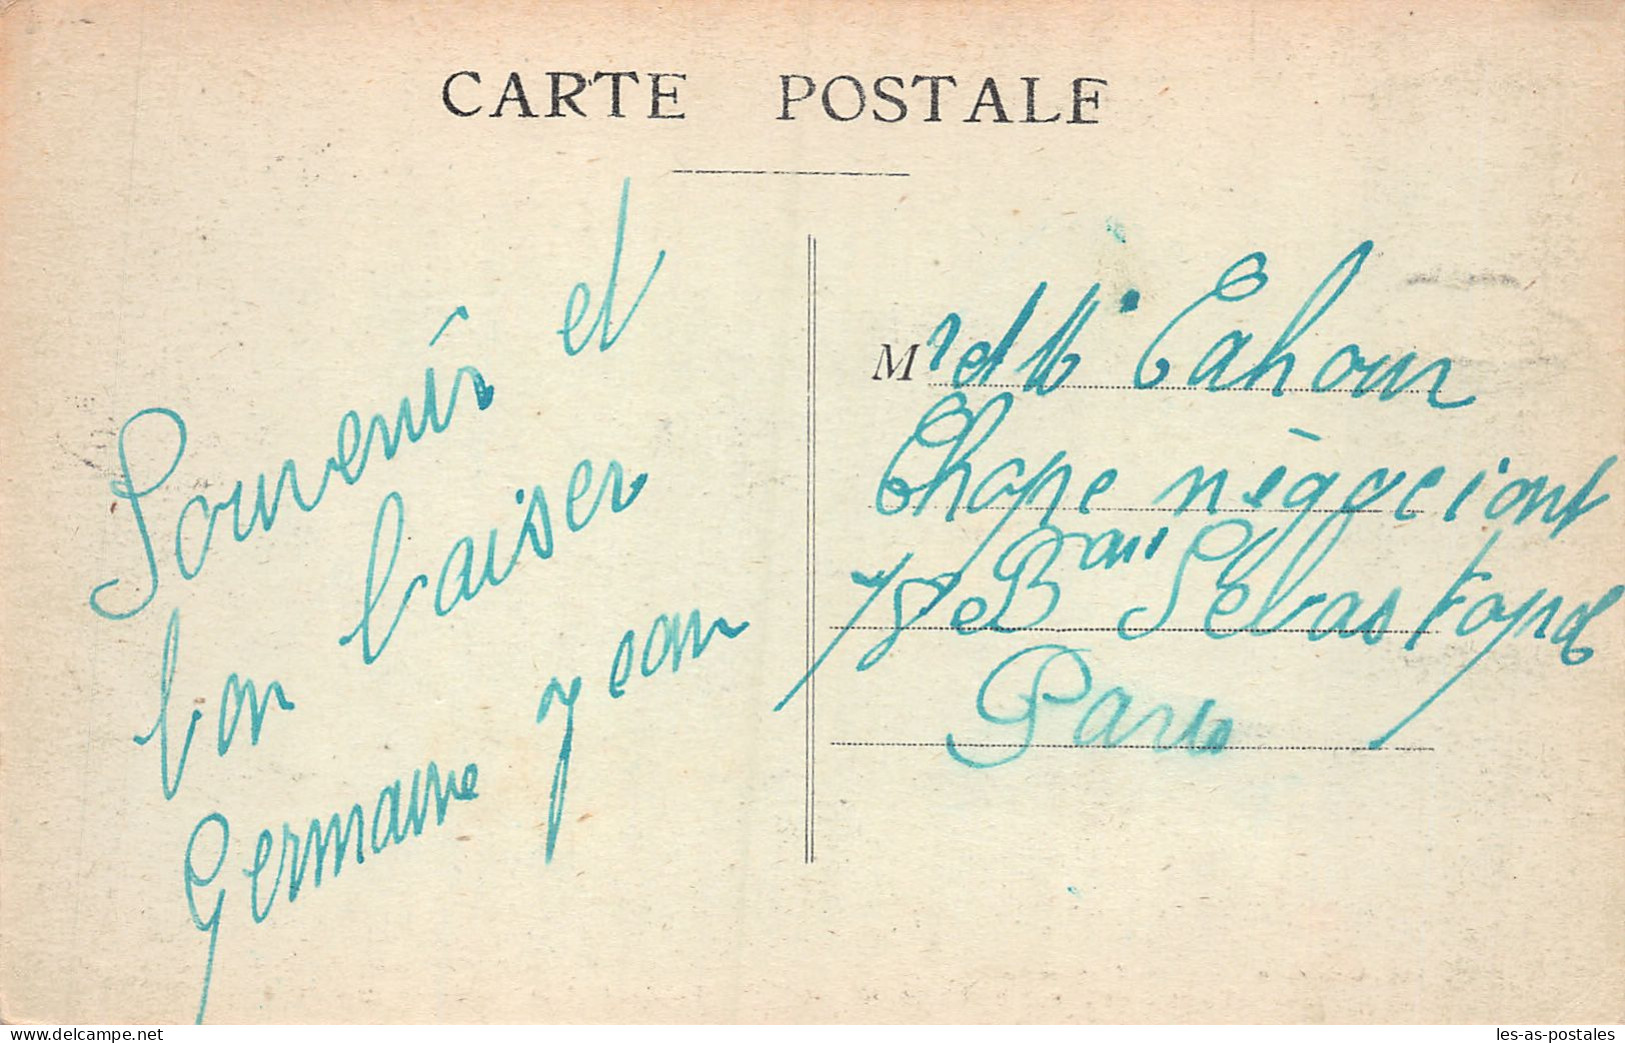 CARTE POSTALE
Souvenir et
bon baiser
Germaine Jean
Mr et Me Cahour
négociant
Bard Sébastopol
Paris
www.delcampe.net
les-as-postales